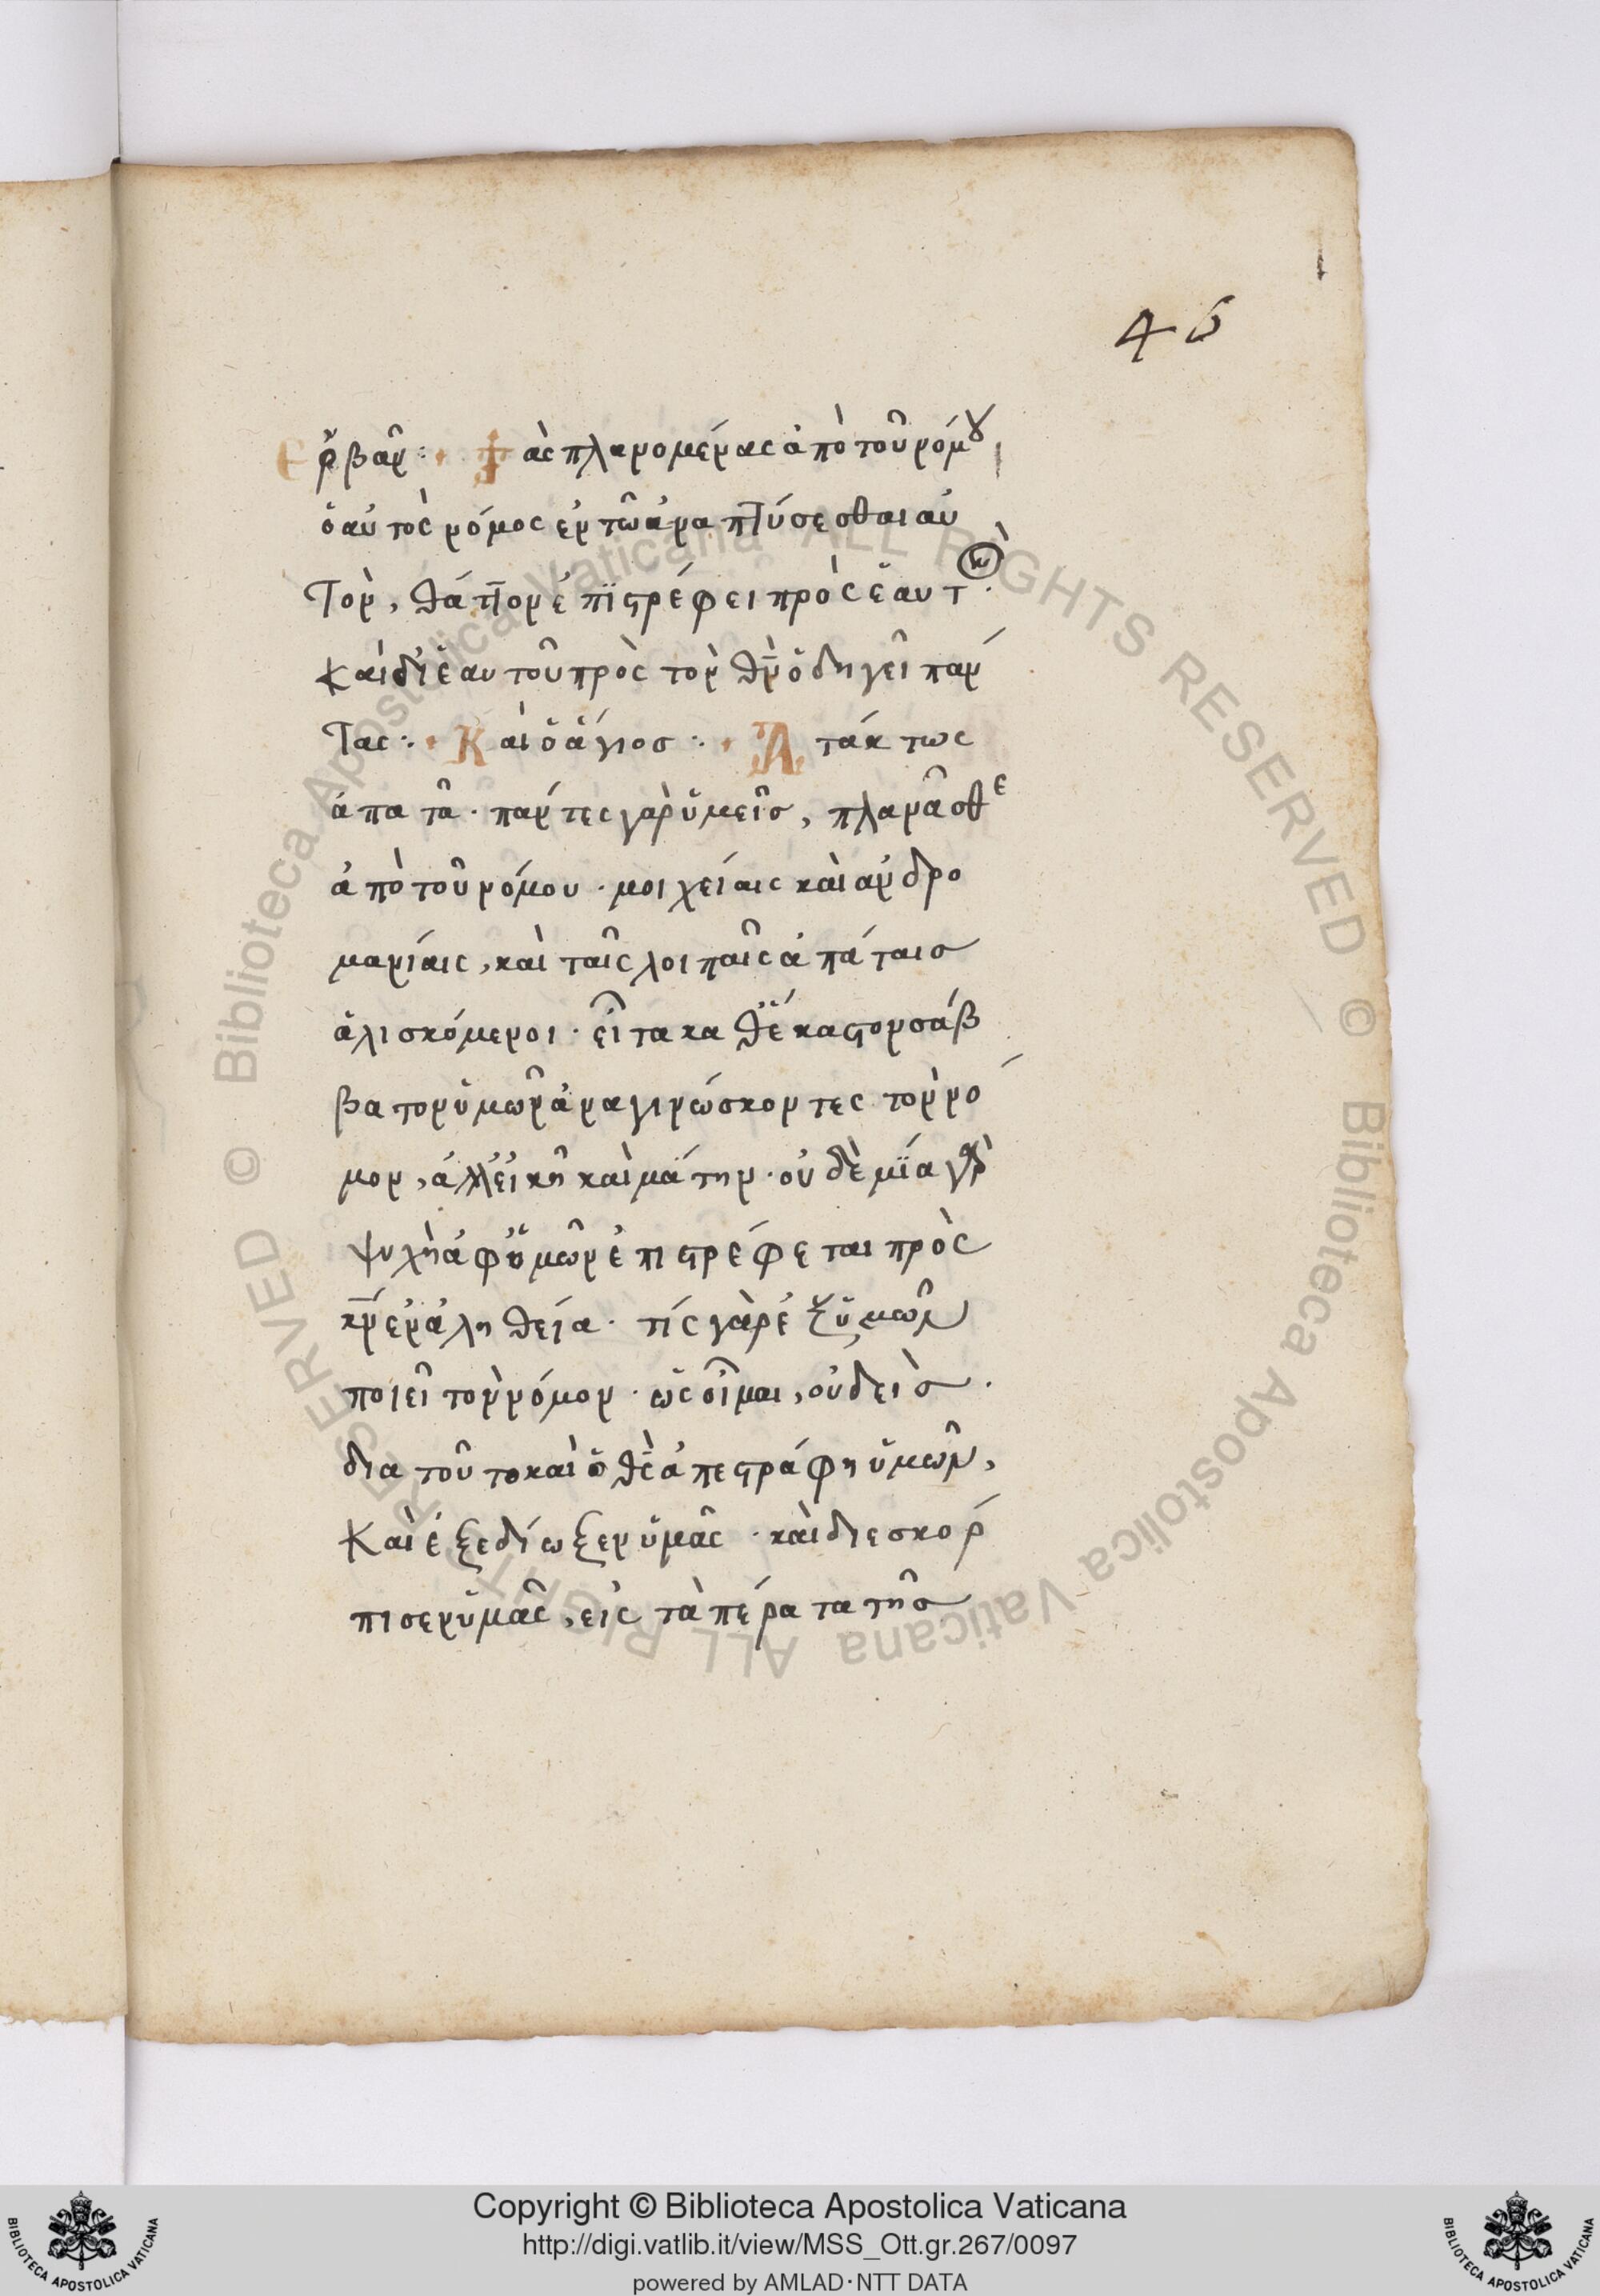 46
Ἑρβὰν:· Τὰς πλανομένας ἀπὸ τοῦ νόμου
ὁ αὐτὸς νόμος ἐν τῶ ἀναπτύσεσθαι αὐ
τὸν, θάττον ἐπιστρέφει πρὸς ἑαυτὸν·
καὶ δι' ἑαυτοῦ πρὸς τὸν θν ὁδηγεῖ πάν
τας:· Καὶ ὁ ἅγιος:· Ἀτάκτως
ἀπατᾶ· πάντες γὰρ ὑμεῖς, πλανᾶσθε
ἀπὸ τοῦ νόμου· μοιχείαις καὶ ἀνδρο
μανίαις, καὶ ταῖς λοιπαῖς ἀπάταις
ἁλισκόμενοι· εἶτα καθ' ἕκαστον σάβ
βατον ὑμῶν ἀναγινώσκοντες τὸν νό
μον, ἀλλ' εἰκῆ καὶ μάτην· οὐδὲ μία γὰρ
ψυχὴ ἀφ' ὑμῶν ἐπιστρέφεται πρὸς
κν ἐν ἀληθεία· τίς γὰρ ἐξ ὑμῶν
ποιεῖ τὸν νόμον· ὡς οἶμαι, οὐδεὶς·
δια τοῦτο καὶ ὁ θς ἀπεστράφη ὑμῶν,
καὶ ἐξεδίωξεν ὑμᾶς· καὶ διεσκόρ
πισεν ὑμᾶς, εἰς τὰ πέρατα τῆς
© Biblioteca Apostolica Vaticana ALL RIGHTS RESERVED © Biblioteca Apostolica Vaticana ALL RIGHTS RESERVED
Copyright © Biblioteca Apostolica Vaticana
http://digi.vatlib.it/view/MSS_Ott.gr.267/0097
powered by AMLAD·NTT DATA
BIBLIOTECA APOSTOLICA VATICANA
BIBLIOTECA APOSTOLICA VATICANA